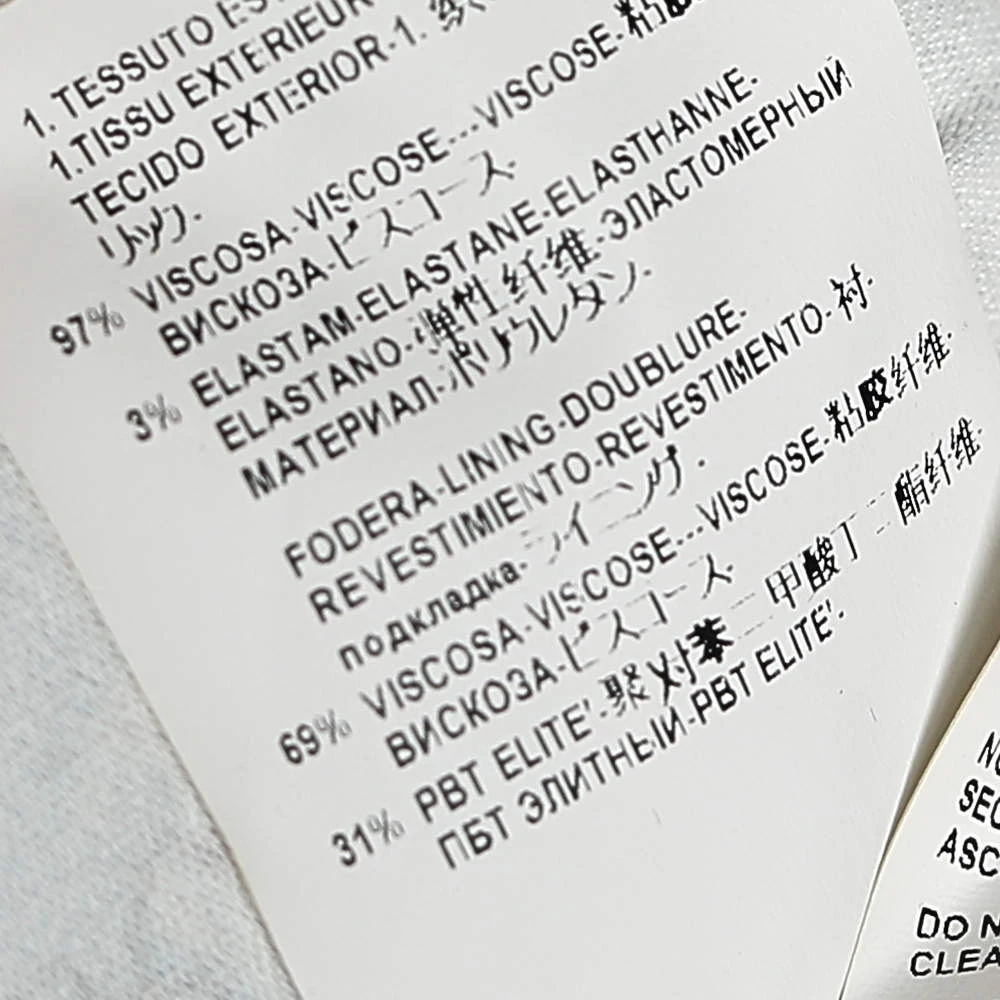 1. TESSUTO
1.TISSU EXTERIEUR
TECIDO EXTERIOR-1.
リック.
97% VISCOSA-VISCOSE---VISCOSE-粘
ВИСКОЗА-ビスコース.
3% ELASTAM-ELASTANE-ELASTHANNE-
ELASTANO-弹性纤维-ЭЛАСТОМЕРНЫЙ
МАТЕРИАЛ-ポリウレタン.
FODERA-LINING-DOUBLURE-
REVESTIMIENTO-REVESTIMENTO-衬-
подкладка-ライニング.
69% VISCOSA-VISCOSE---VISCOSE-粘胶纤维-
ВИСКОЗА-ビスコース.
31% PBT ELITE'-聚对苯二甲酸丁二酯纤维-
ПБТ ЭЛИТНЫЙ-PBT ELITE'-
DO